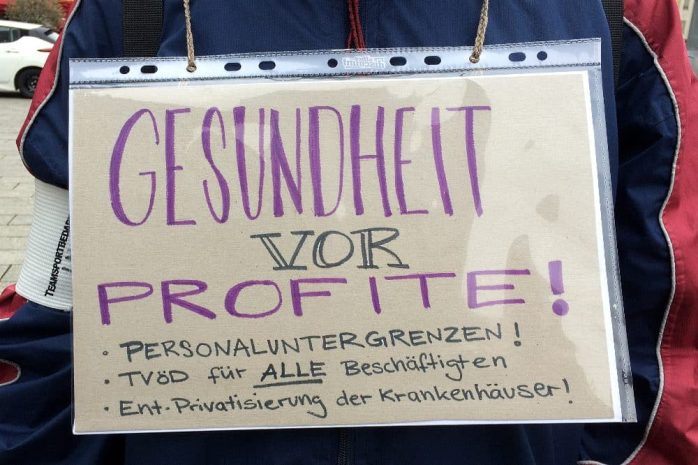 GESUNDHEIT
VOR
PROFITE!
· PERSONALUNTERGRENZEN!
· TVöD für ALLE Beschäftigten
· Ent-Privatisierung der Krankenhäuser!
TEAMSPORTBEDA